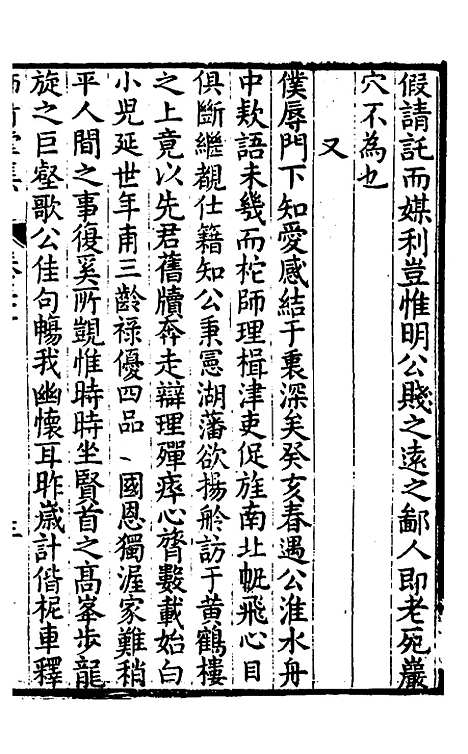 假請託而媒利豈惟明公賤之遠之鄙人即老死巖
穴不為也
又
僕辱門下知愛感結于裏深矣癸亥春遇公淮水舟
中欵語未幾而柁師理楫津吏促旌南北帆飛心目
俱斷繼覩仕籍知公秉憲湖藩欲揚舲訪于黄鶴樓
之上竟以先君舊牘奔走辯理殫瘁心膂數載始白
小兒延世年甫三齡祿優四品、國恩獨渥家難稍
平人間之事復奚所覬惟時時坐賢首之髙峯步龍
旋之巨壑歌公佳句暢我幽懷耳昨嵗計偕柅車釋